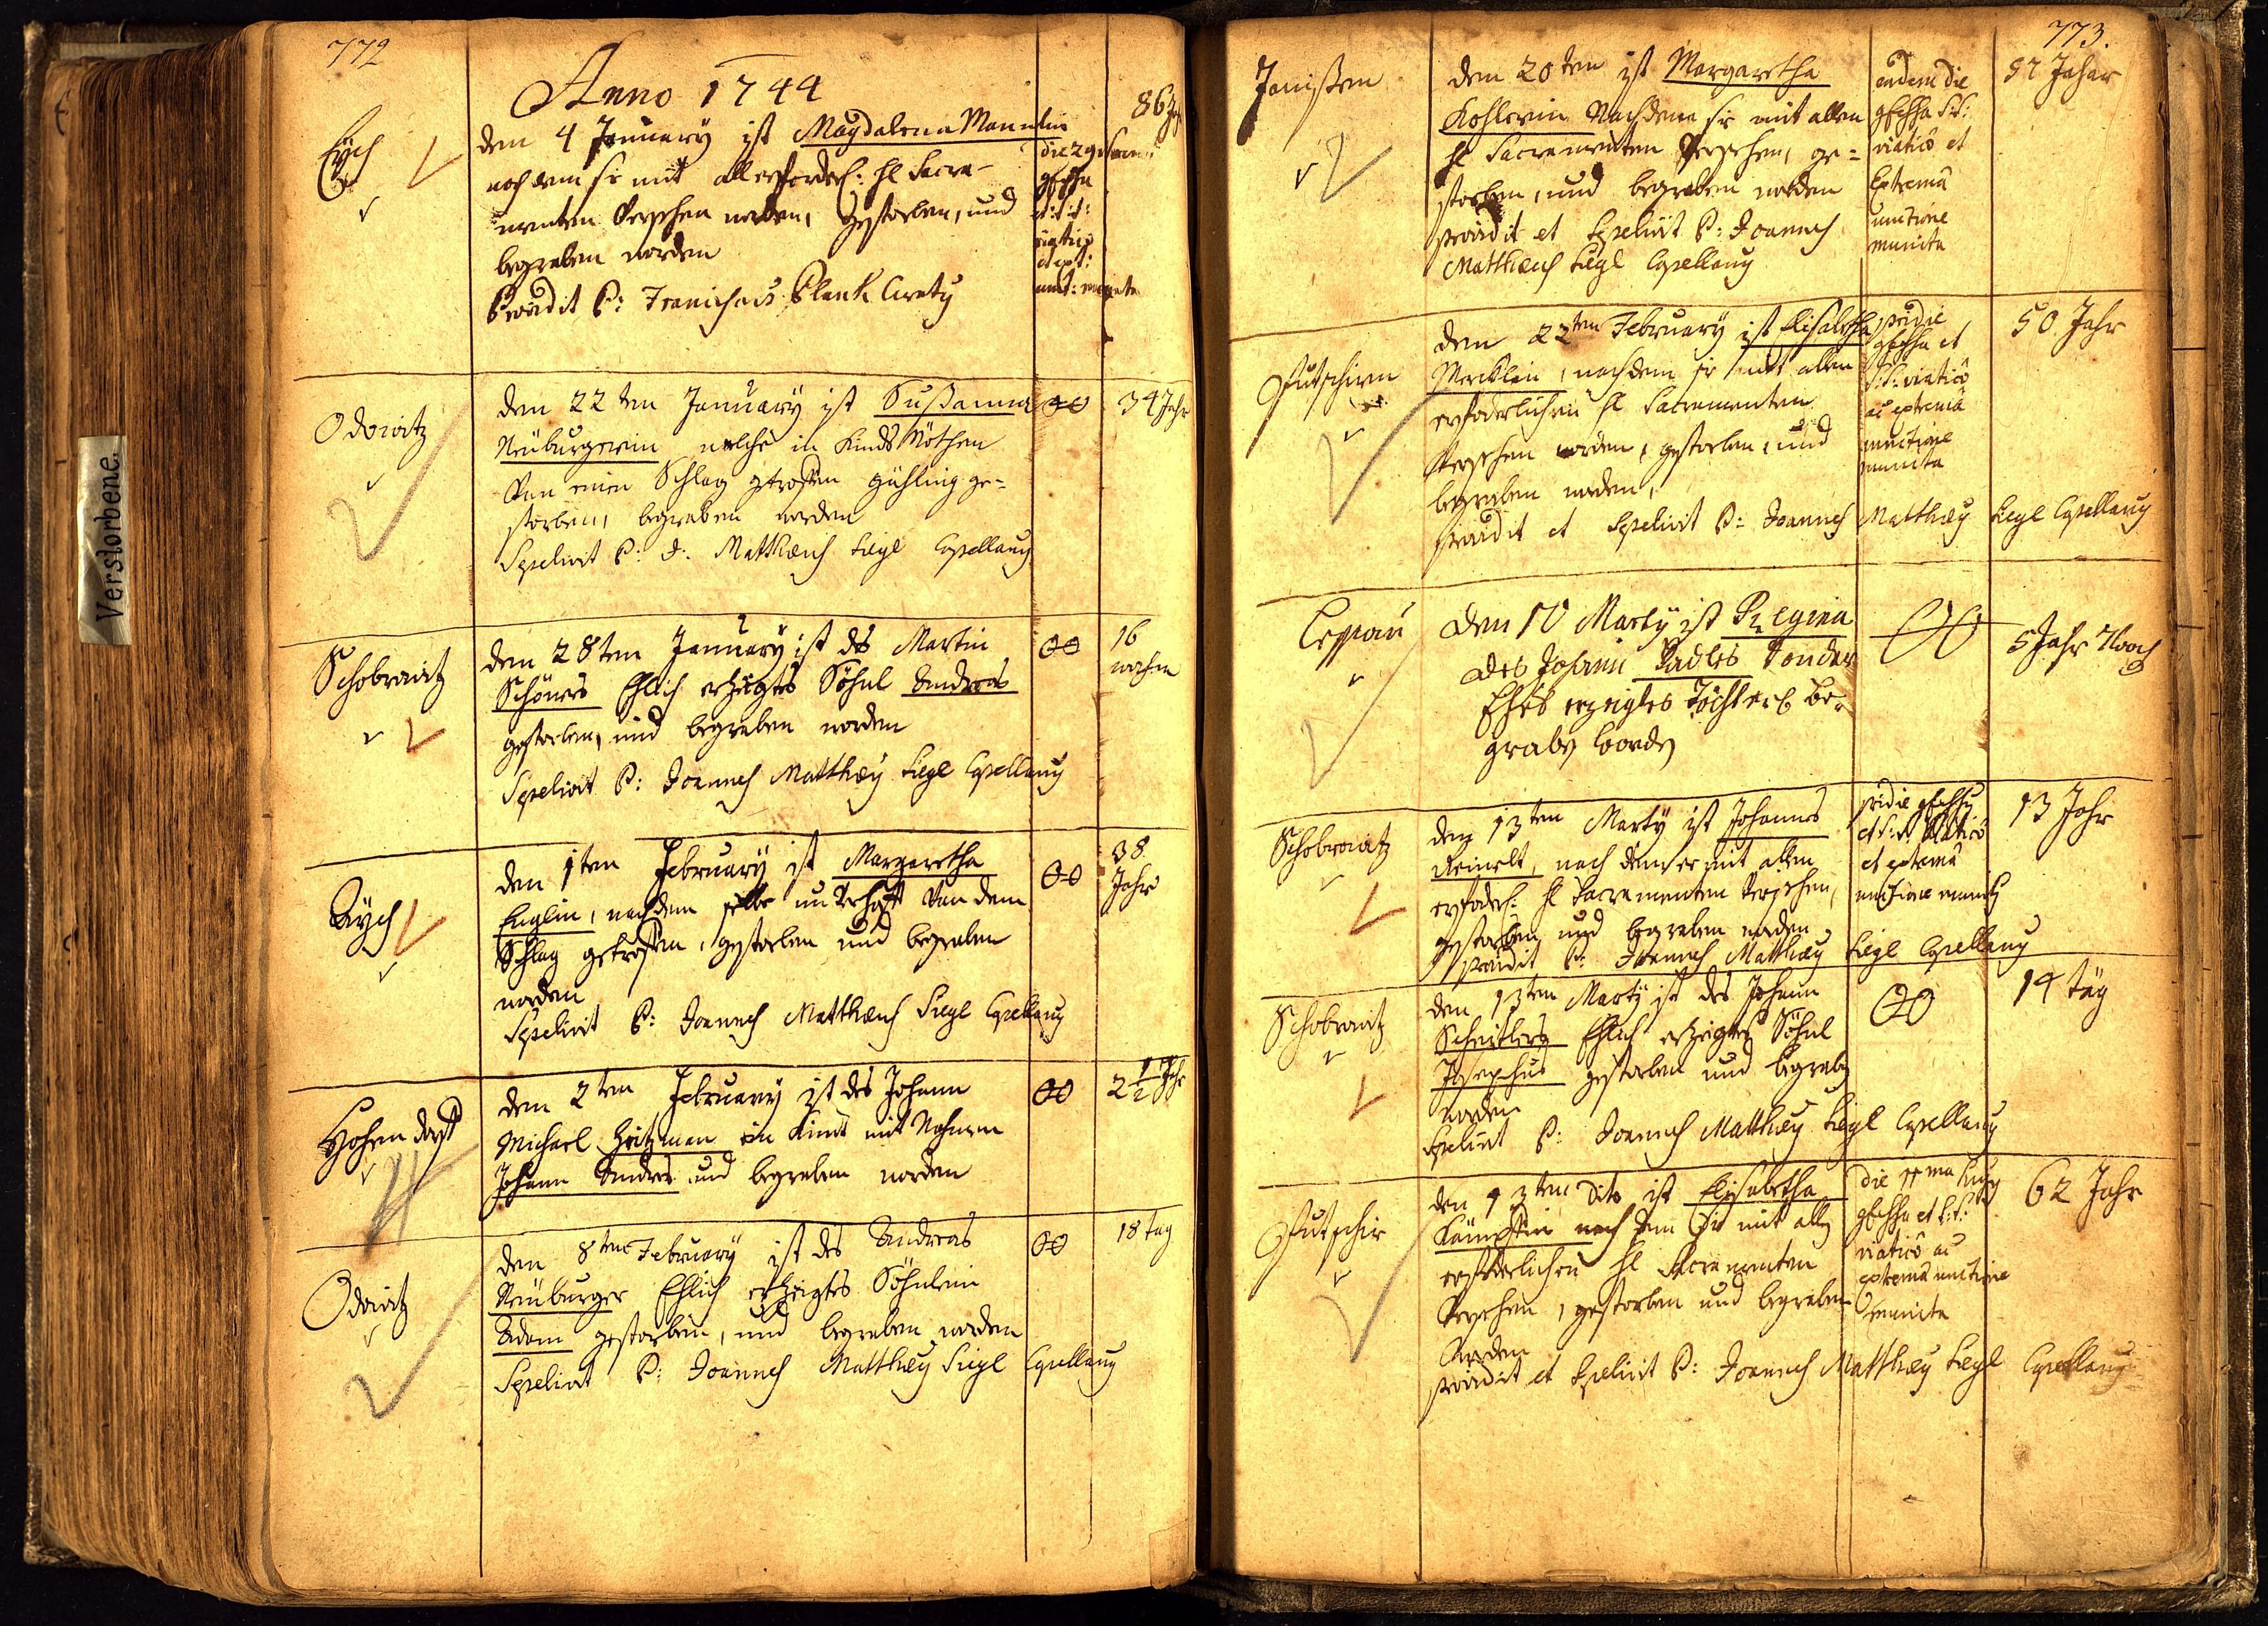 772
Anno 1744
Eÿch
den 4 January ist Magdalena Mannlin
nach dem sie mit all erforderl: hl Sacra-
menten Versehen worden, gestorben, und
begraben worden
Providit P: Franciscus Plank Curaty
die 2 ejusdem
viatico
et ext:
unct: munita
86 Jahr
Odowitz
den 22ten January ist Sußanna
Neüburgerin welche in Kinds Nöthen
Von einen Schlag getroffen gähling ge=
storben, begraben worden
Sepelivit P: J: Matthæus Siegl Capellanus
00
34 Jahr
Schobrowitz
den 28ten January ist des Martin
Schöners Ehlich erzeigtes Söhnl Andreas
gestorben, und begraben worden
Sepelivit P: Joannes Matthæy Siegl Capellanus
00
16
wochen
Aÿch
den 1ten February ist Margaretha
Englin, nach dem selbe Von dem
Schlag getroffen, gestorben und begraben
worden
Sepelivit P: Joannes Matthæus Siegl Capellanus
00
38
Jahr
Hohendorff
den 2ten February ist des Johann
Michael Heitzman ein Kind mit Nahmen
Johann Andres und begraben worden
00
2 1/2 Jahr
Odowitz
den 8ten February ist des Andreas
Neuburger Ehlich erzeigtes Söhnlein
Adam gestorben, und begraben worden
Sepelivit P: Joannes Matthæy Siegl Capellanus
00
18 tag
Verstorbene.
773.
Janißen
den 20ten ist Margaretha
Kohlerin Nachdeme sie mit allen
hl Sacramenten Versehen, ge=
storben, und begraben worden
providit et Sepelivit P: Joannes
Matthæus Siegl Capellanus
eadem die
viatico et
Extrema
unctione
munita
57 Jahr
Putschirn
den 22ten February ist Elisabetha
Mercklin, nachdem sie mit allen
erforderlichen hl Sacramenten
Versehen worden, gestorben, und
begraben worden,
providit et Sepelivit P: Joannes Matthæy Siegl Capellanus
pridie
et
viatico
ac extrema
unctione
munita
50 Jahr
Lessau
den 10 Marty ist Regina
des Johann Padles
Ehes erzeigtes Töchterl be=
graben worden
00
5 Jahr
Schobrowitz
den 13ten Marty ist Johannes
Reinelt, nach dem er mit allen
erforderl: hl Sacramenten Versehen,
gestorben und begraben worden
providit P: Joannes Matthæy Siegl Capellanus
pridie
viatico
et extrema
unctione
13 Jahr
Schobrowitz
den 13ten Marty ist des Johann
Ehlich erzeigtes Söhnl
Josephus gestorben und begraben
worden
Sepelivit P: Joannes Matthæy Siegl Capellanus
00
14 täg
Putschir
den 13ten dito ist Elisabetha
nach dem Sie mit allen
erforderlichen hl Sacramenten
Versehen, gestorben und begraben
worden
providit et Sepelivit P: Joannes Matthæy Siegl Capellanus
die 11ma
viatico ac
extrema unctione
munita
62 Jahr